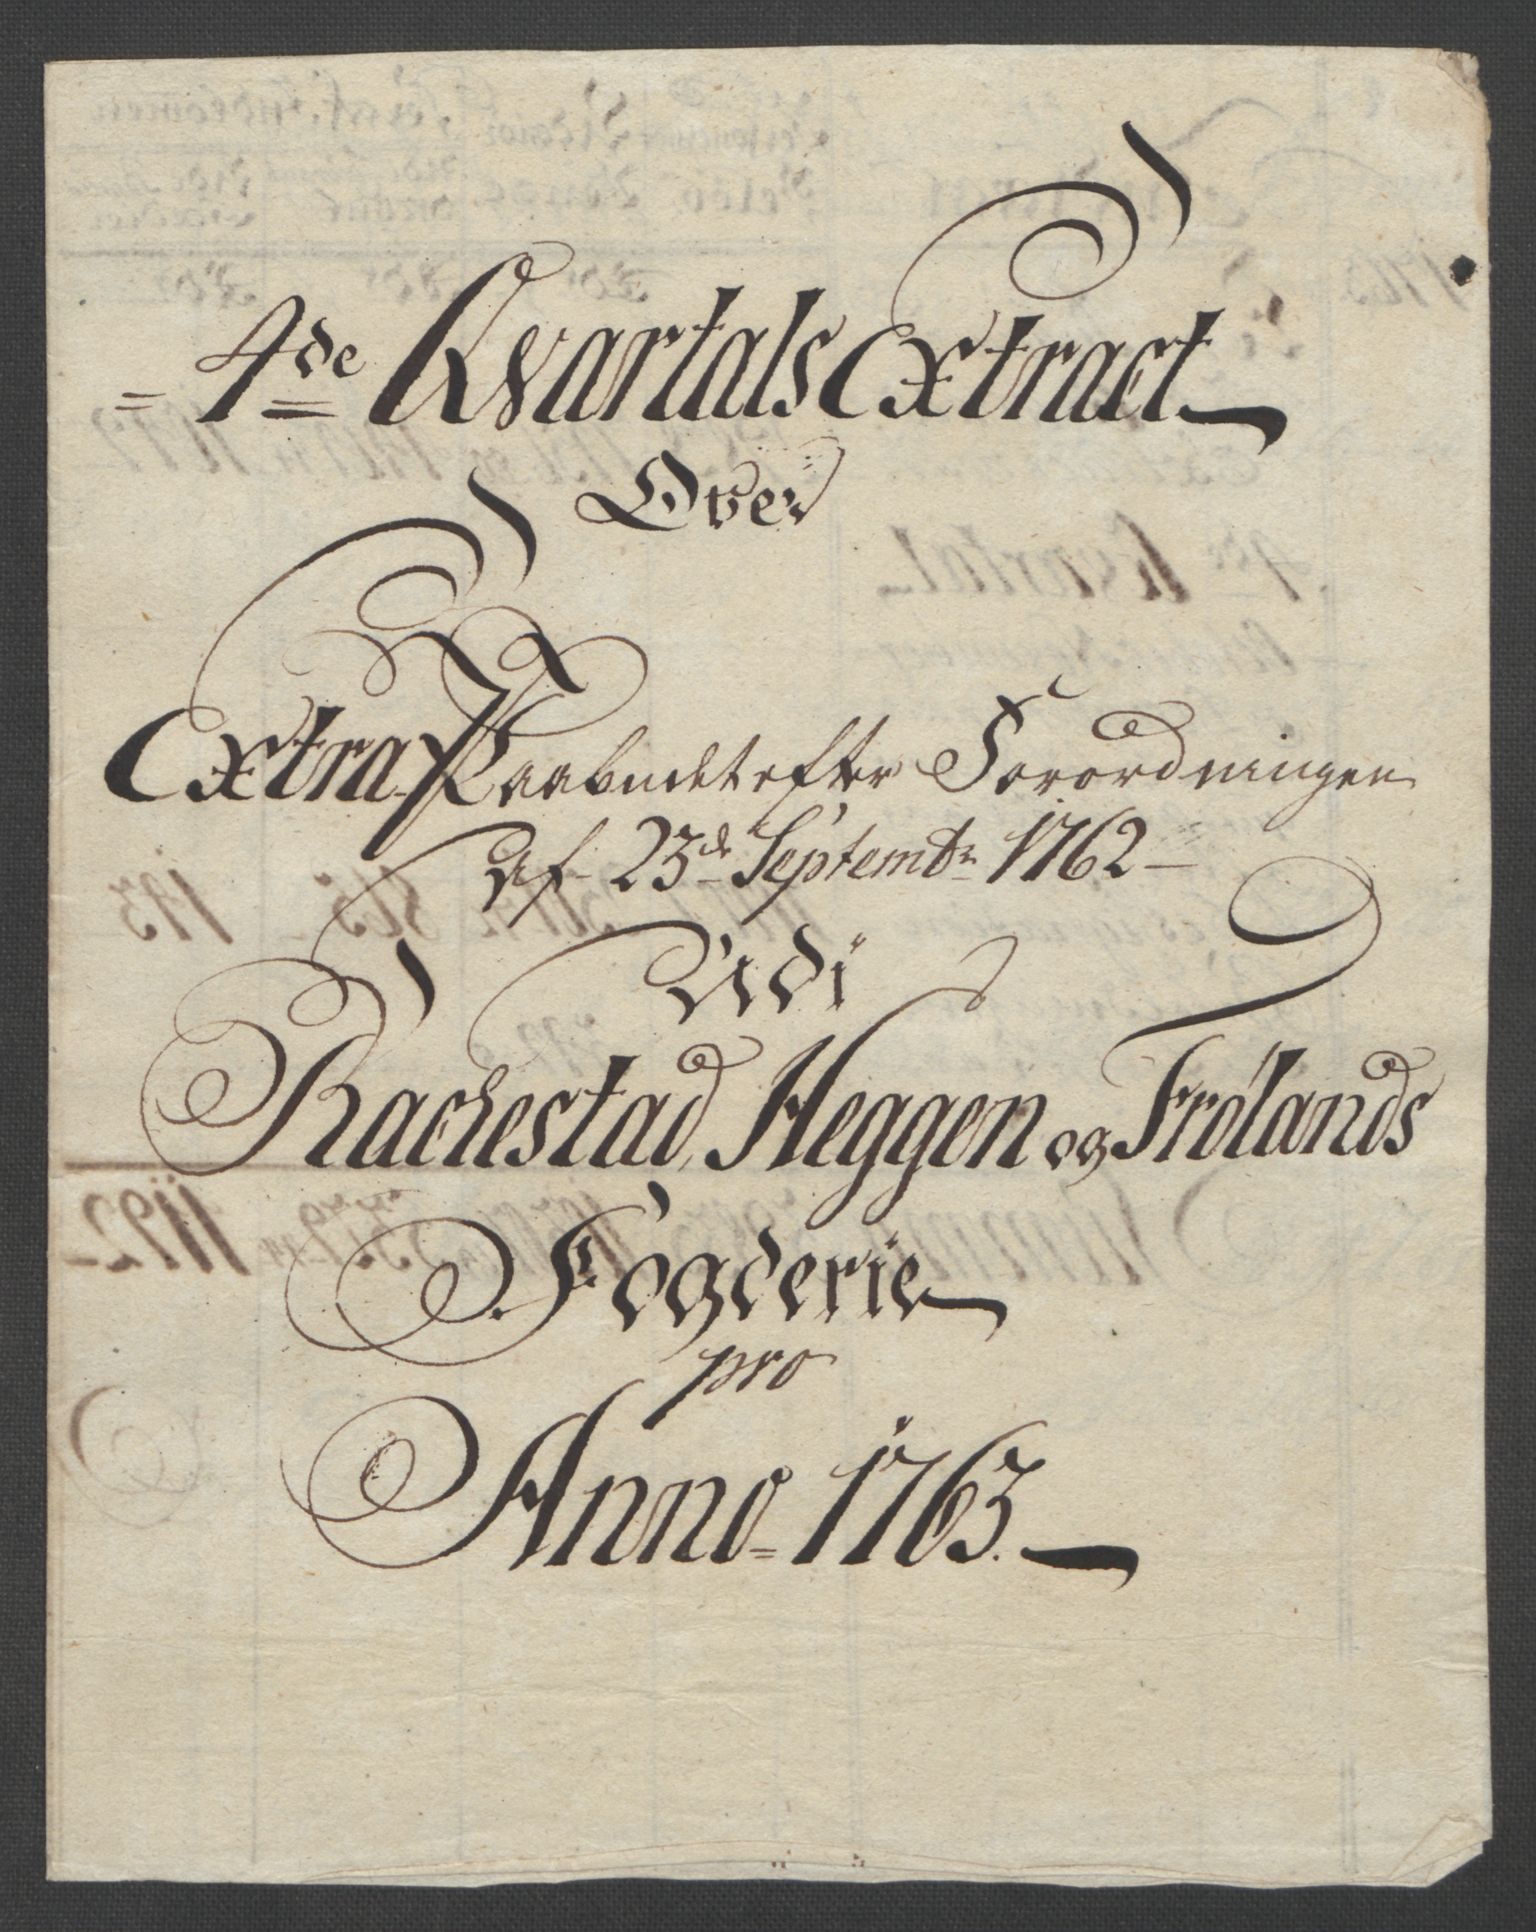 = 4de Kvartals Extract
Over
Extra Paabudet efter Forordningen
af 23de Septembr 1762
Udi
Rachestad, Heggen og Frølands
Fogderie
pro
Anno 1763.